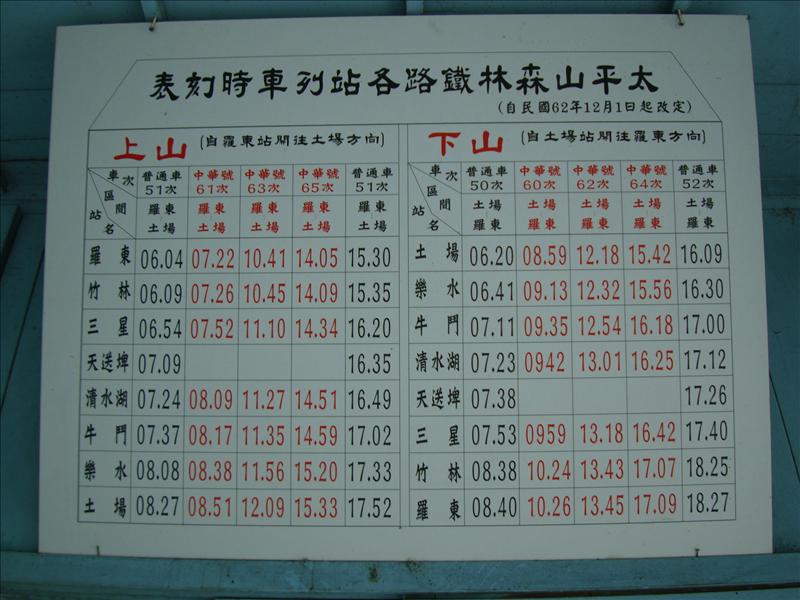 太平山森林鐵路各站列車時刻表
(自民國62年12月1日起改定)
上山 (自羅東站開往土場方向)
車次 區間 站名 普通車51次 中華號61次 中華號63次 中華號65次 普通車51次
羅東 土場 羅東 土場 羅東 土場 羅東 土場 羅東 土場
羅東 06.04 07.22 10.41 14.05 15.30
竹林 06.09 07.26 10.45 14.09 15.35
三星 06.54 07.52 11.10 14.34 16.20
天送埤 07.09 16.35
清水湖 07.24 08.09 11.27 14.51 16.49
牛鬥 07.37 08.17 11.35 14.59 17.02
樂水 08.08 08.38 11.56 15.20 17.33
土場 08.27 08.51 12.09 15.33 17.52
下山 (自土場站開往羅東方向)
車次 區間 站名 普通車50次 中華號60次 中華號62次 中華號64次 普通車52次
土場 羅東 土場 羅東 土場 羅東 土場 羅東 土場 羅東
土場 06.20 08.59 12.18 15.42 16.09
樂水 06.41 09.13 12.32 15.56 16.30
牛鬥 07.11 09.35 12.54 16.18 17.00
清水湖 07.23 0942 13.01 16.25 17.12
天送埤 07.38 17.26
三星 07.53 0959 13.18 16.42 17.40
竹林 08.38 10.24 13.43 17.07 18.25
羅東 08.40 10.26 13.45 17.09 18.27